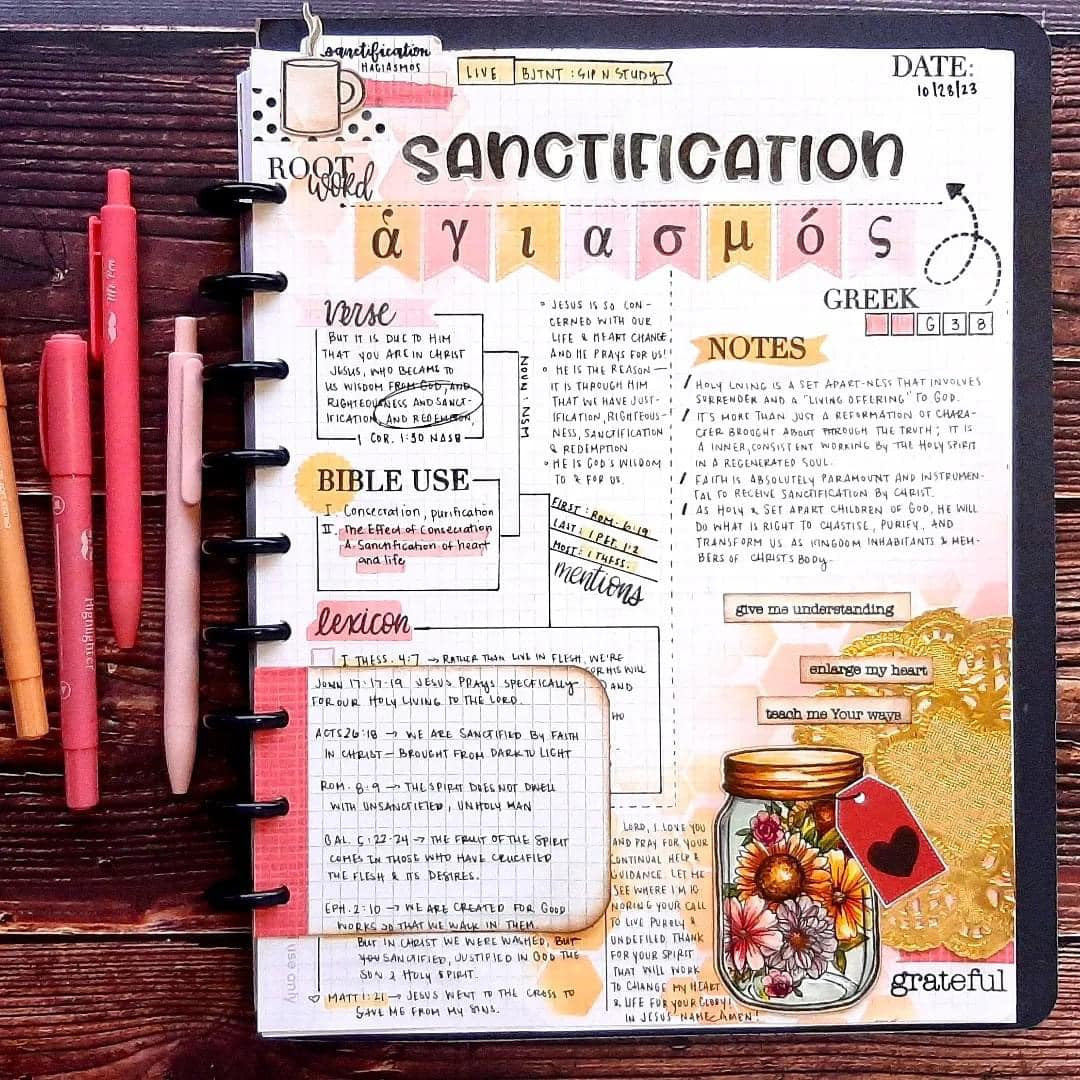 sanctification
HAGIASMOS
LIVE BJTNT : SIP N STUDY
DATE:
10/28/23
ROOT
word
SANCTIFICATION
ἁγιασμός
GREEK
G 3 8
verse
BUT IT IS DUE TO HIM
THAT YOU ARE IN CHRIST
JESUS, WHO BECAME TO
US WISDOM FROM GOD, AND
RIGHTEOUSNESS AND SANCT-
IFICATION, AND REDEMPTION,
1 COR. 1:30 NASB
NOUN : NSM
BIBLE USE
I. Consecration, purification
II. The Effect of Consecration
A. Sanctification of heart
and life
° JESUS IS SO CON-
CERNED WITH OUR
LIFE & HEART CHANGE,
AND HE PRAYS FOR US!
° HE IS THE REASON—
IT IS THROUGH HIM
THAT WE HAVE JUST-
IFICATION, RIGHTEOUS-
NESS, SANCTIFICATION
& REDEMPTION
° HE IS GOD'S WISDOM
TO & FOR US.
FIRST : ROM. 6:19
LAST : 1 PET. 1:2
MOST : 1 THESS.
mentions
NOTES
/ HOLY LIVING IS A SET APART-NESS THAT INVOLVES
SURRENDER AND A "LIVING OFFERING" TO GOD.
/ IT'S MORE THAN JUST A REFORMATION OF CHARA-
CTER BROUGHT ABOUT THROUGH THE TRUTH; IT IS
A INNER, CONSISTENT WORKING BY THE HOLY SPIRIT
IN A REGENERATED SOUL.
/ FAITH IS ABSOLUTELY PARAMOUNT AND INSTRUMEN-
TAL TO RECEIVE SANCTIFICATION BY CHRIST.
/ AS HOLY & SET APART CHILDREN OF GOD, HE WILL
DO WHAT IS RIGHT TO CHASTISE, PURIFY, AND
TRANSFORM US AS KINGDOM INHABITANTS & MEM-
BERS OF CHRIST'S BODY.
lexicon
I THESS. 4:7 → RATHER THAN LIVE IN FLESH, WE'RE
FOR HIS WILL
AND
HO
JOHN 17:17-19 JESUS PRAYS SPECIFICALLY
FOR OUR HOLY LIVING TO THE LORD.
ACTS 26:18 → WE ARE SANCTIFIED BY FAITH
IN CHRIST — BROUGHT FROM DARK TO LIGHT
ROM. 8:9 → THE SPIRIT DOES NOT DWELL
WITH UNSANCTIFIED, UNHOLY MAN
GAL. 5:22-24 → THE FRUIT OF THE SPIRIT
COMES IN THOSE WHO HAVE CRUCIFIED
THE FLESH & ITS DESIRES.
EPH. 2:10 → WE ARE CREATED FOR GOOD
WORKS SO THAT WE WALK IN THEM.
BUT IN CHRIST WE WERE WASHED, BUT
YOU SANCTIFIED, JUSTIFIED IN GOD THE
SON & HOLY SPIRIT.
MATT 1:21 → JESUS WENT TO THE CROSS TO
SAVE ME FROM MY SINS.
use only
give me understanding
enlarge my heart
teach me Your ways
LORD, I LOVE YOU
AND PRAY FOR YOUR
CONTINUAL HELP &
GUIDANCE. LET ME
SEE WHERE I'M IG
NORING YOUR CALL
TO LIVE PURELY &
UNDEFILED, THANK
FOR YOUR SPIRIT
THAT WILL WORK
TO CHANGE MY HEART
& LIFE FOR YOUR GLORY!
IN JESUS NAME AMEN!
grateful
Mr. em
Highlighter